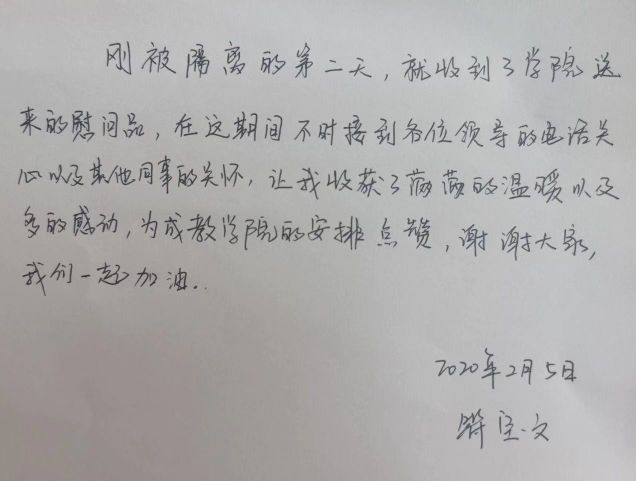 刚被隔离的第二天，就收到了学院送
来的慰问品，在这期间不时接到各位领导的电话关
心以及其他同事的关怀，让我收获了满满的温暖以及
多的感动，为成教学院的安排点赞，谢谢大家，
我们一起加油..
2020年2月5日
符宝文